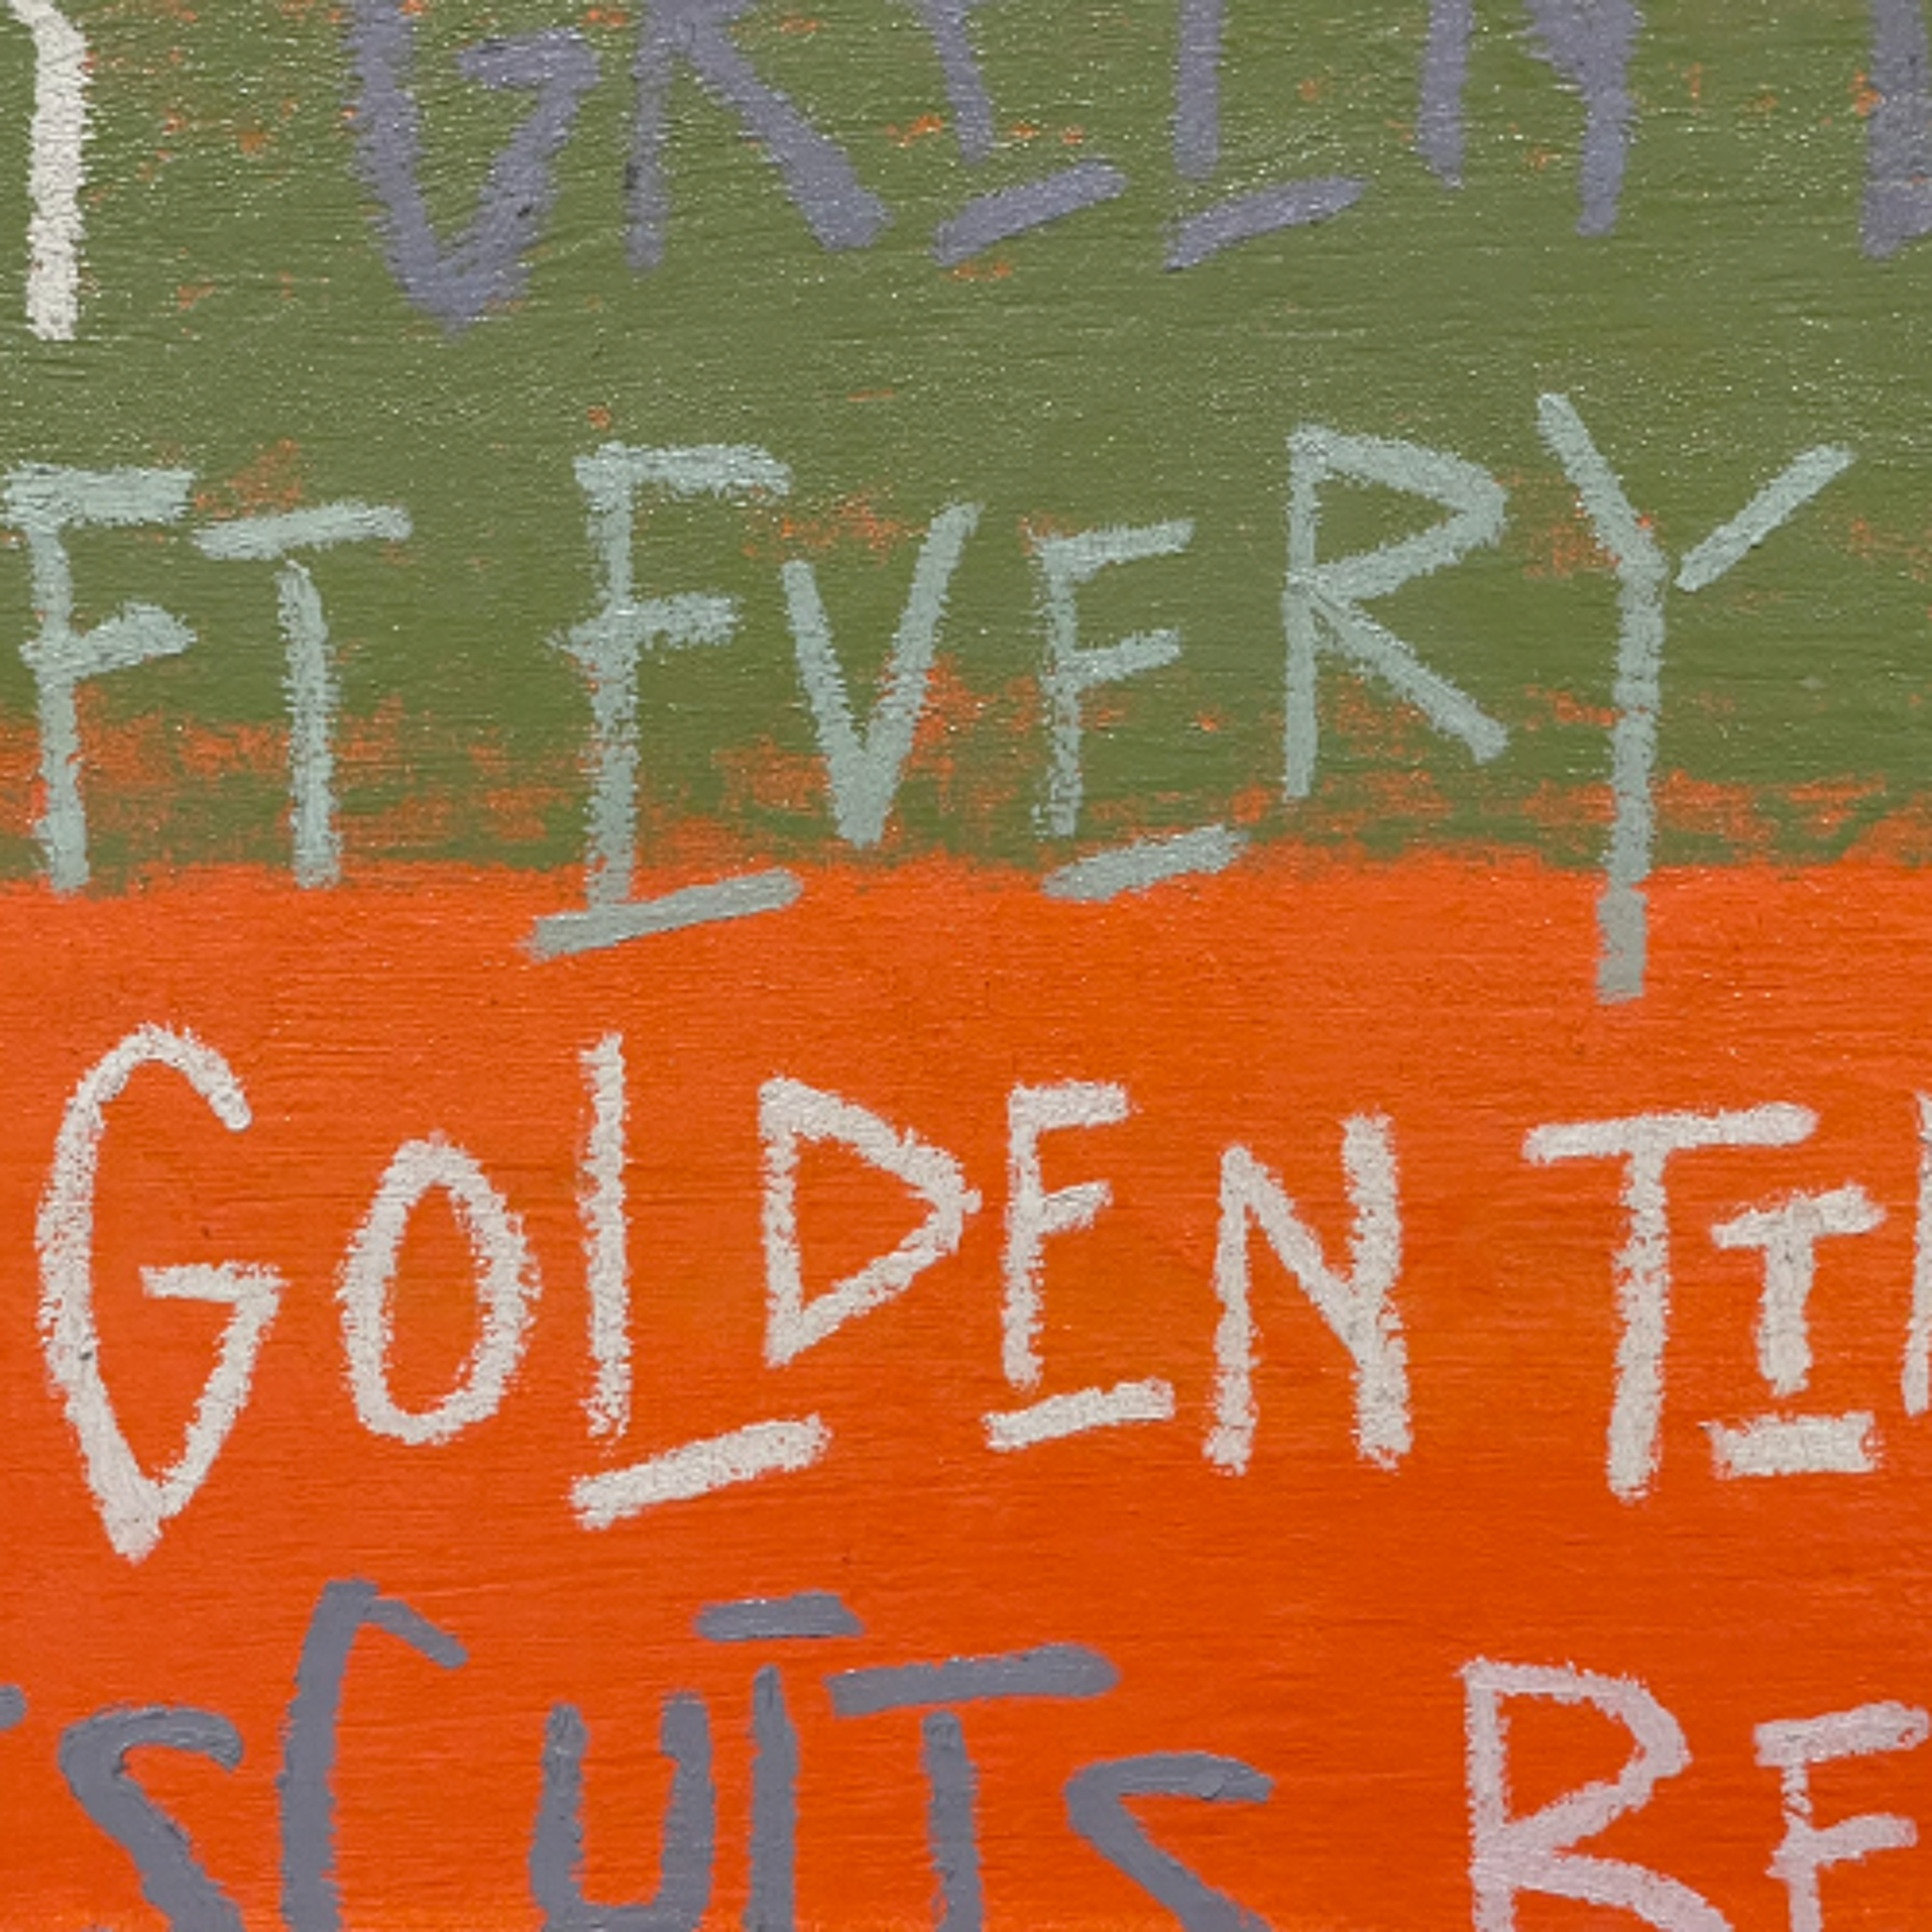 GREEN
FT EVERY
GOLDEN TI
SCUITS RE